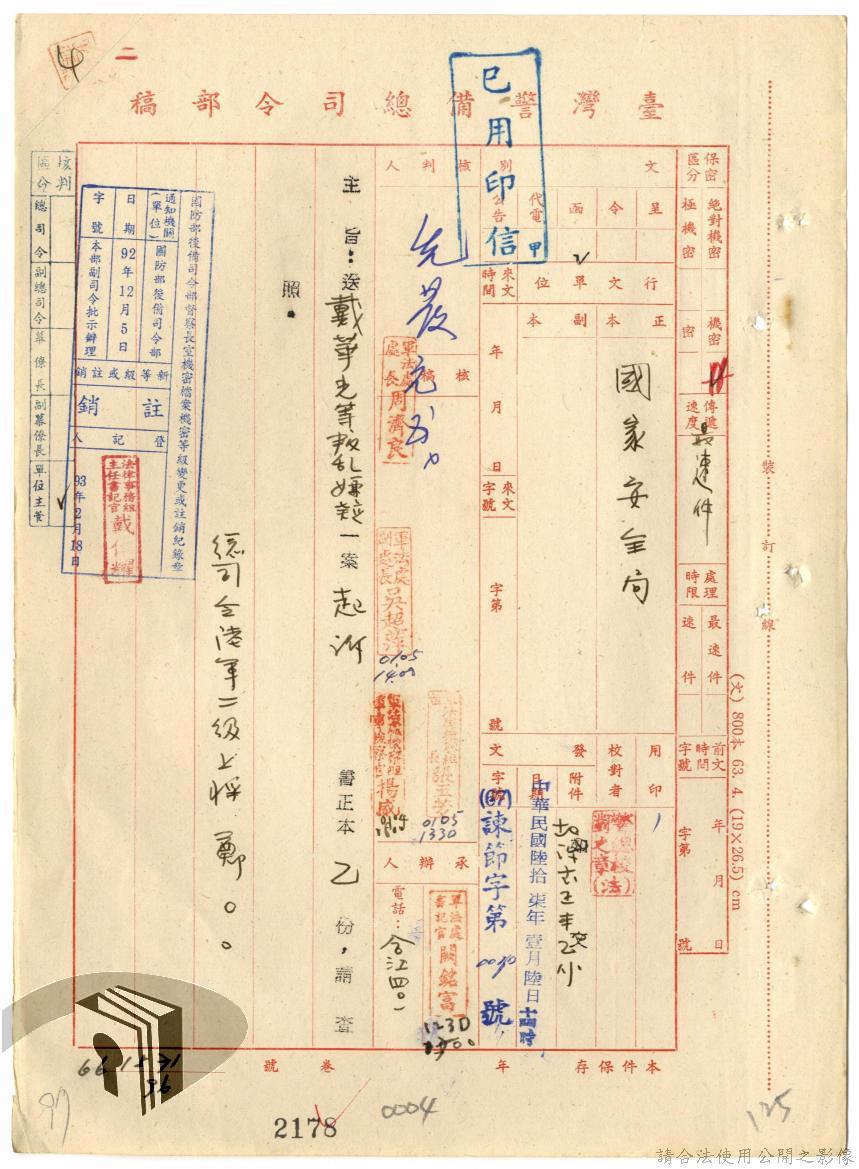 二
臺灣警備總司令部稿
已用印信
甲
保密區分
絕對機密
極機密
機密
密
傳遞速度
最速件
處理時限
最速件
速件
前文時間字號
年 月 日
字第 號
裝訂線
(文) 800本 63. 4. (19×26.5) cm
文別
呈
令
函
代電
公告
行文單位
正本
副本
國家安全局
來文時間
年 月 日
來文字號
字第 號
用印
校對者
發文
附件
日期
字號
中華民國陸拾柒年壹月陸日
(67)諫節字第0030號
核判人
先發
核稿
軍法處處長周濟良
軍法處副處長吳超萍
0105
1330
承辦人
軍法處書記官闕銘富
1230
電話：合江四〇一
主旨：送戴華光等叛亂嫌疑一案起訴書正本乙份，請查照。
總司令陸軍二級上將 鄭〇〇
國防部後備司令部督察長室機密檔案機密等級變更或註銷紀錄章
通知機關(單位)
國防部後備司令部
日期
92年12月5日
字號
本部副司令批示辦理
新等級或註銷
註銷
登記人
法律事務組主任書記官戴仁耀
93年2月18日
核判區分
總司令
副總司令
幕僚長
副幕僚長
單位主管
本件保存 年
卷號
66 1571
56
97
2178
0004
125
請合法使用公開之影像